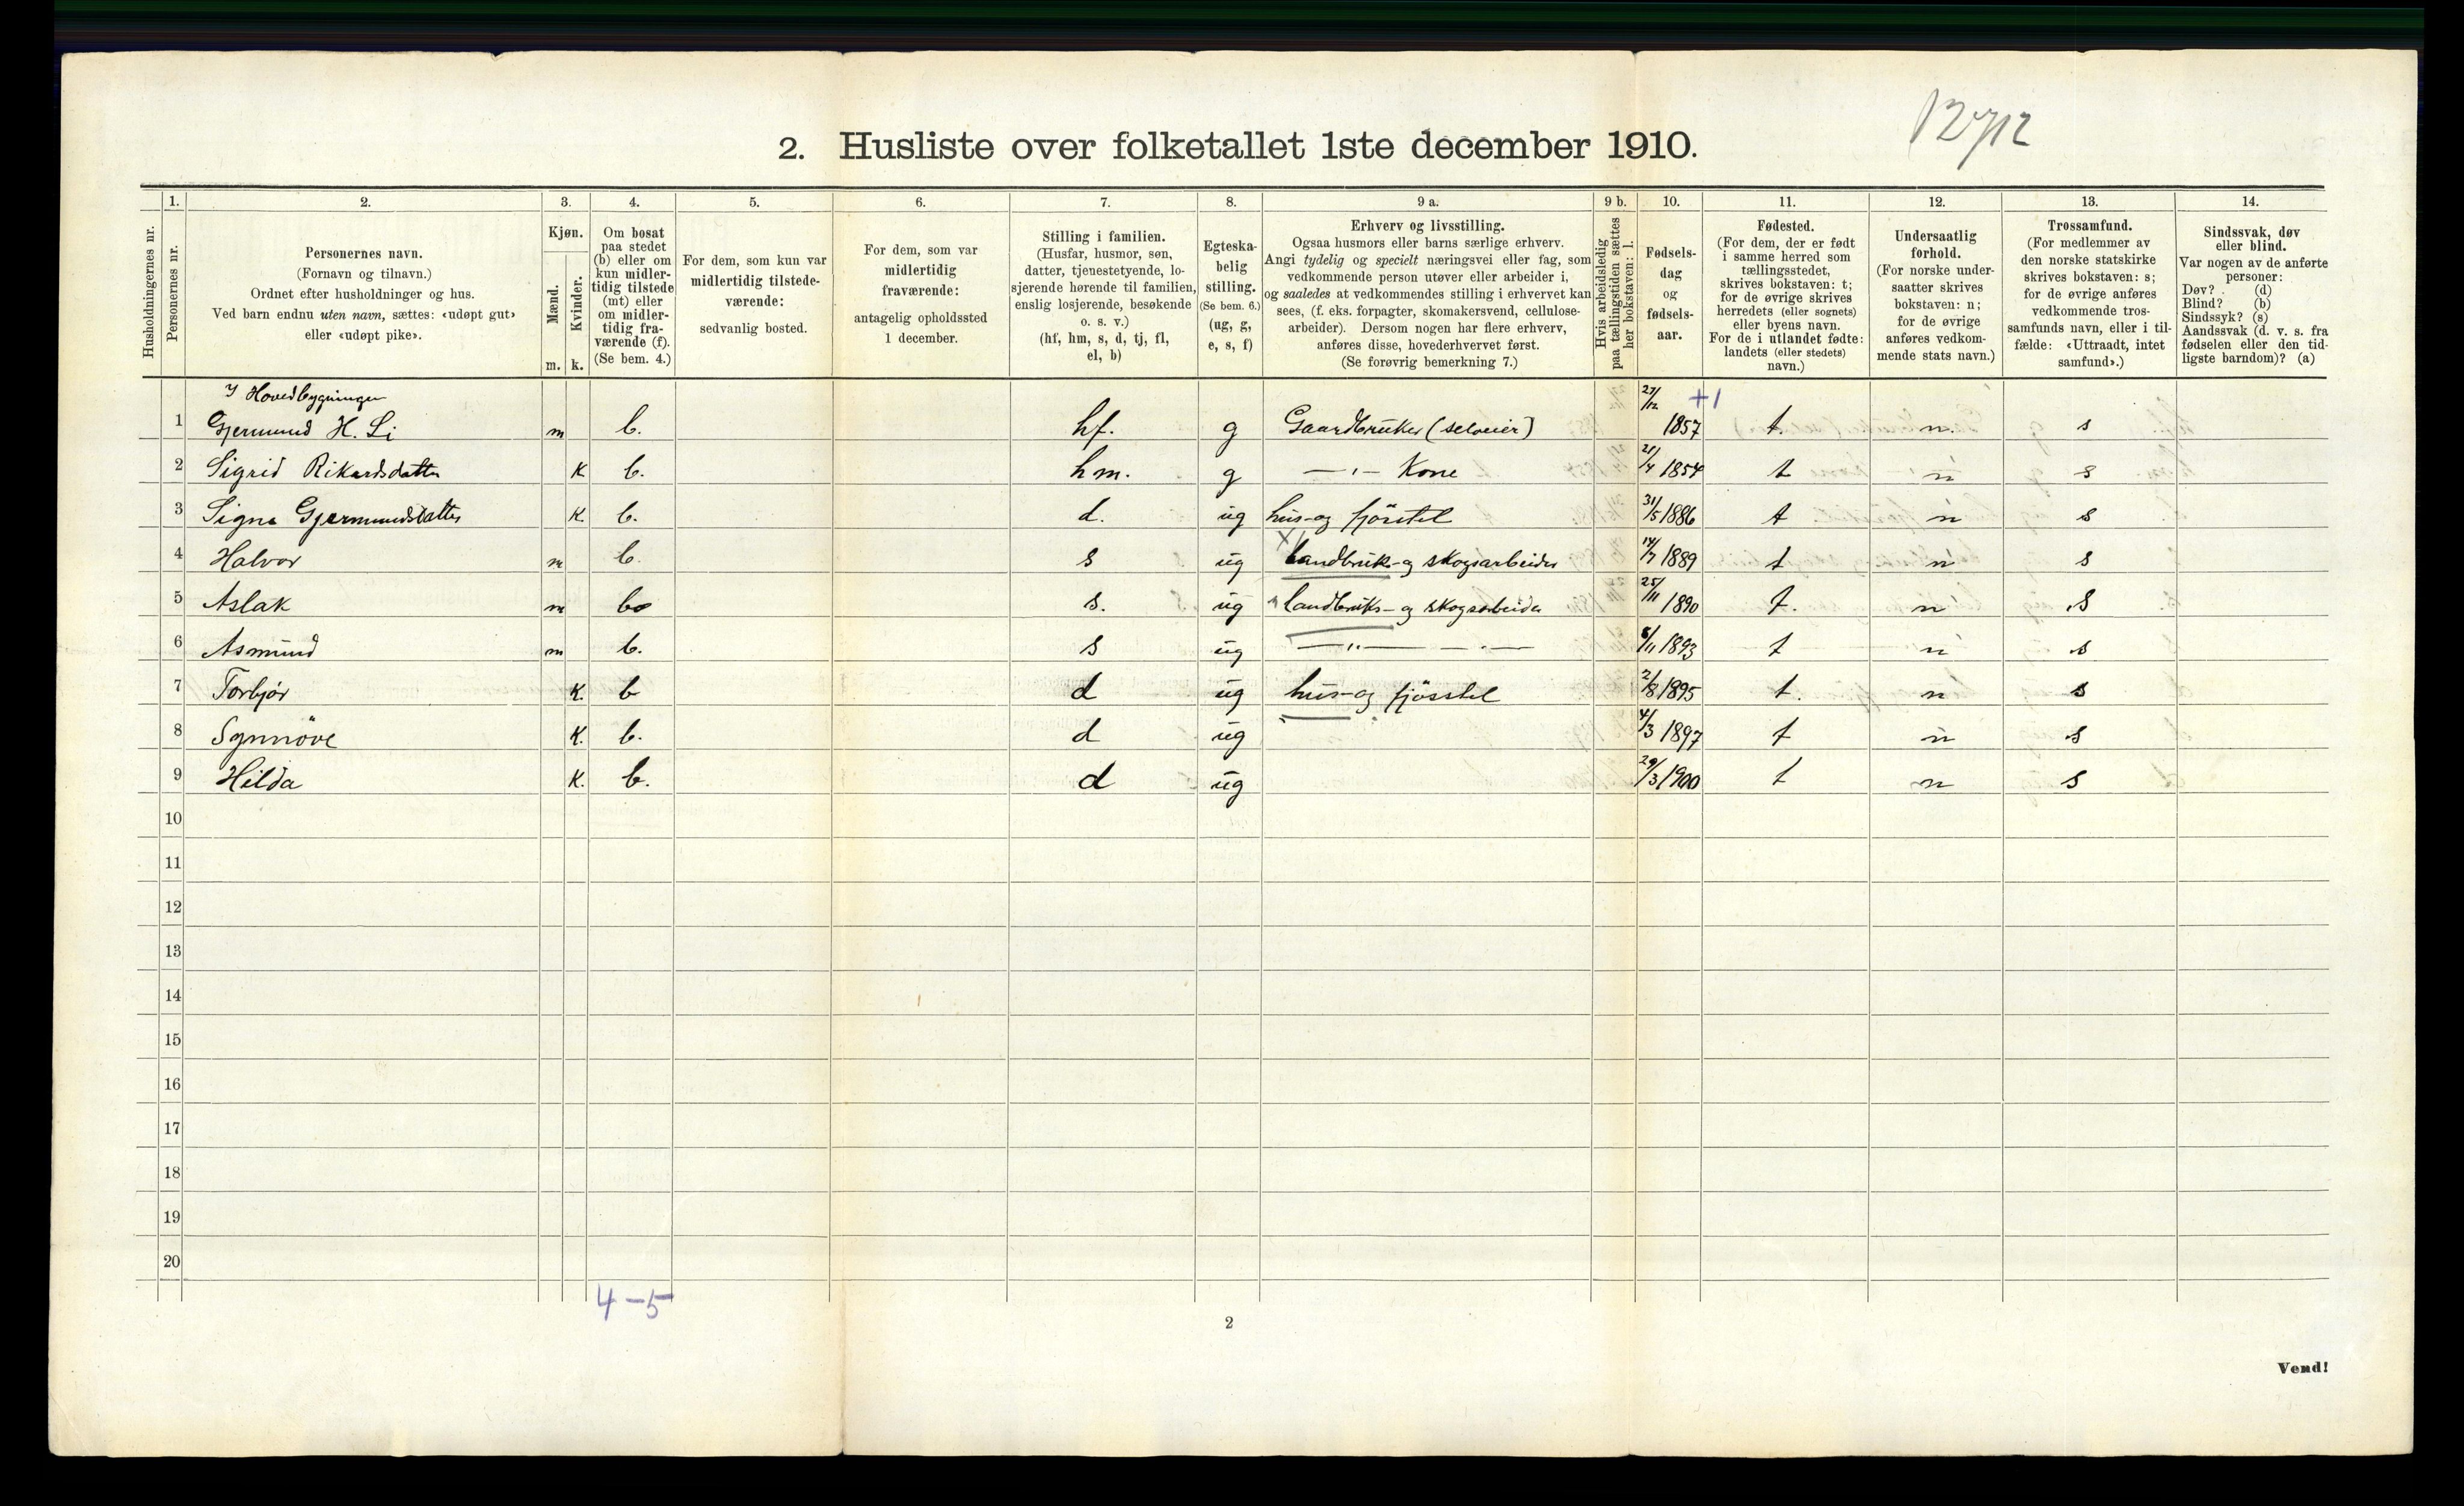 12712
2. Husliste over folketallet 1ste december 1910.
Husholdningernes nr.
1. Personernes nr.
2. Personernes navn. (Fornavn og tilnavn.) Ordnet efter husholdninger og hus. Ved barn endnu uten navn, sættes: «udøpt gut» eller «udøpt pike».
3. Kjøn. Mænd. m. Kvinder. k.
4. Om bosat paa stedet (b) eller om kun midler-tidig tilstede (mt) eller om midler-tidig fra-værende (f). (Se bem. 4.)
5. For dem, som kun var midlertidig tilstede-værende: sedvanlig bosted.
6. For dem, som var midlertidig fraværende: antagelig opholdssted 1 december.
7. Stilling i familien. (Husfar, husmor, søn, datter, tjenestetyende, lo-sjerende hørende til familien, enslig losjerende, besøkende o. s. v.) (hf, hm, s, d, tj, fl, el, b)
8. Egteska-belig stilling. (Se bem. 6.) (ug, g, e, s, f)
9 a. Erhverv og livsstilling. Ogsaa husmors eller barns særlige erhverv. Angi tydelig og specielt næringsvei eller fag, som vedkommende person utøver eller arbeider i, og saaledes at vedkommendes stilling i erhvervet kan sees, (f. eks. forpagter, skomakersvend, cellulose-arbeider). Dersom nogen har flere erhverv, anføres disse, hovederhvervet først. (Se forøvrig bemerkning 7.)
9 b. Hvis arbeidsledig paa tællingstiden sættes her bokstaven: l.
10. Fødsels-dag og fødsels-aar.
11. Fødested. (For dem, der er født i samme herred som tællingsstedet, skrives bokstaven: t; for de øvrige skrives herredets (eller sognets) eller byens navn. For de i utlandet fødte: landets (eller stedets) navn.)
12. Undersaatlig forhold. (For norske under-saatter skrives bokstaven: n; for de øvrige anføres vedkom-mende stats navn.)
13. Trossamfund. (For medlemmer av den norske statskirke skrives bokstaven: s; for de øvrige anføres vedkommende tros-samfunds navn, eller i til-fælde: «Uttraadt, intet samfund».)
14. Sindssvak, døv eller blind. Var nogen av de anførte personer: Døv? (d) Blind? (b) Sindssyk? (s) Aandssvak (d. v. s. fra fødselen eller den tid-ligste barndom)? (a)
I Hovedbygningen
1 Gjermund H. Li m b. hf. g Gaardbruker (selveier) 27/12 1857 +1 t. n. s
2 Sigrid Rikardsdatter K b. hm. g —"— Kone 21/4 1854 t n s
3 Signe Gjermundsdatter K. b. d. ug hus- og fjösstel 31/5 1886 t n s
4 Halvor m b. s ug landbruk- og skogsarbeider 14/7 1889 t n s
5 Aslak m b s. ug landbruks- og skogsarbeider 25/11 1890 t. n s
6 Asmund m b. s ug —"— —"— 6/11 1893 t n s
7 Torbjør K. b d ug hus- og fjösstel 2/8 1895 t. n s
8 Synnöve K. b. d ug 4/3 1897 t n s
9 Hilda K. b. d ug 29/3 1900 t n s
10
11
12
13
14
15
16
17
18
19
20
4 - 5
2
Vend!